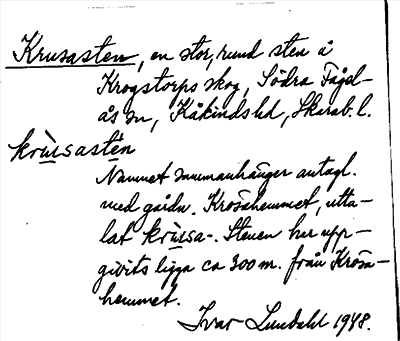 Krusasten, en stor, rund sten å
Krogstorps skog, Södra Fågel-
ås sn, Kåkinds hd, Skarab. l.
krùsastèn
Namnet sammanhänger antagl.
med gårdn. Krösahemmet, utta-
lat krùsa-. Stenen har upp-
givits ligga ca 300 m. från Krösa-
hemmet.
Ivar Lundahl 1948.